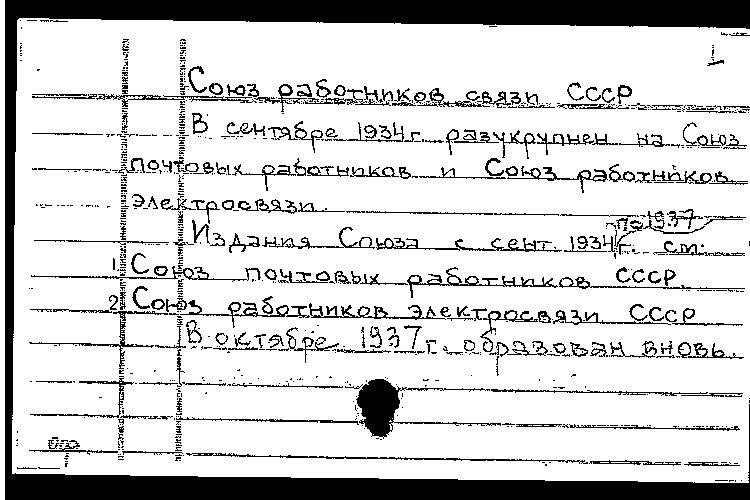 1
Союз работников связи СССР
В сентябре 1934 г. разукрупнен на Союз
почтовых работников и Союз работников
электросвязи.
по 1937
Издания Союза с сент. 1934 г. см.
1 Союз почтовых работников СССР.
2 Союз работников электросвязи СССР
В октябре 1937 г. образован вновь.